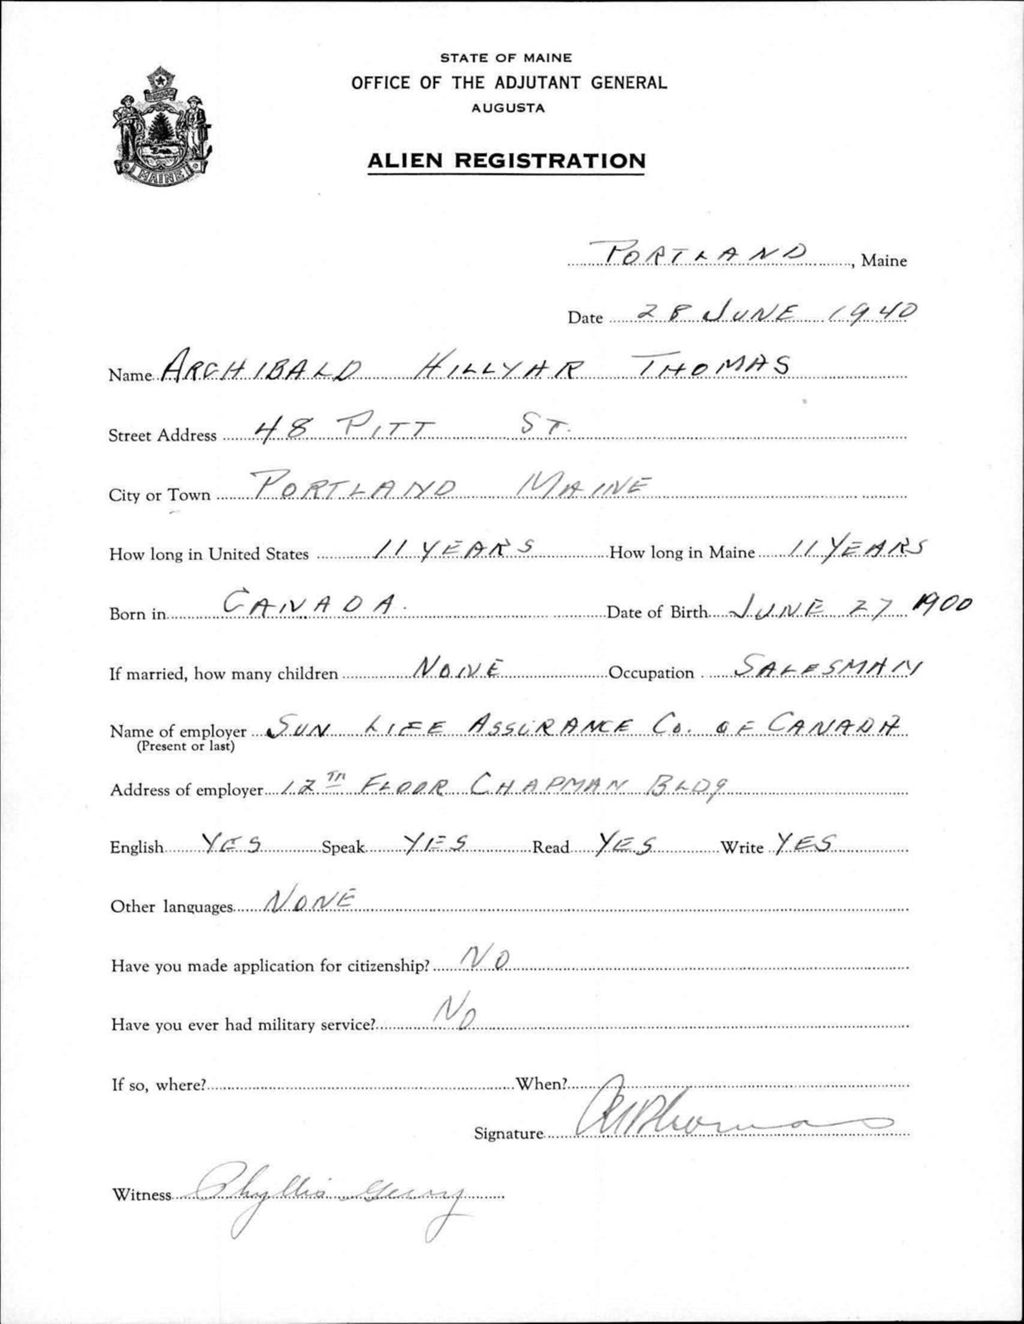 STATE OF MAINE
OFFICE OF THE ADJUTANT GENERAL
AUGUSTA
ALIEN REGISTRATION
MAINE
PORTLAND, Maine
Date 28 JUNE 1940
Name ARCHIBALD HILLYAR THOMAS
Street Address 48 PITT ST.
City or Town PORTLAND MAINE
How long in United States 11 YEARS How long in Maine 11 YEARS
Born in CANADA. Date of Birth JUNE 27 1900
If married, how many children NONE Occupation SALESMAN
Name of employer SUN LIFE ASSURANCE Co. OF CANADA
(Present or last)
Address of employer 12TH FLOOR CHAPMAN BLDG
English YES Speak YES Read YES Write YES
Other languages NONE
Have you made application for citizenship? NO
Have you ever had military service? NO
If so, where? When?
Signature AHThomas
Witness Phyllis